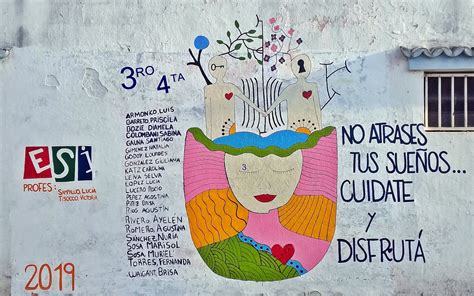 3RO
4TA
ARMONICO, LUIS
BARRETO, PRISCILA
BOZIE DIAMELA
COLOMBANI SABINA
GAUNA SANTIAGO
GIMENEZ NATALIA
GODOY LOURDES
GONZALEZ GIULIANA
KATZ CAROLINA
LEIVA SELVA
LOPEZ LUCIA
LUCERO ROCIO
PEREZ AGOSTINA
RIOS AGUSTÍN
RIVERO AYELEN
ROMERO, AGUSTINA
SÁNCHEZ, NURIA
SOSA MARISOL
SOSA MURIEL
TORRES, FERNANDA
WAIGANT, BRISA
ESI
PROFES:
LUCIA
VICTORIA
2019
3
NO ATRASES
TUS SUEÑOS...
CUIDATE
Y
DISFRUTÁ